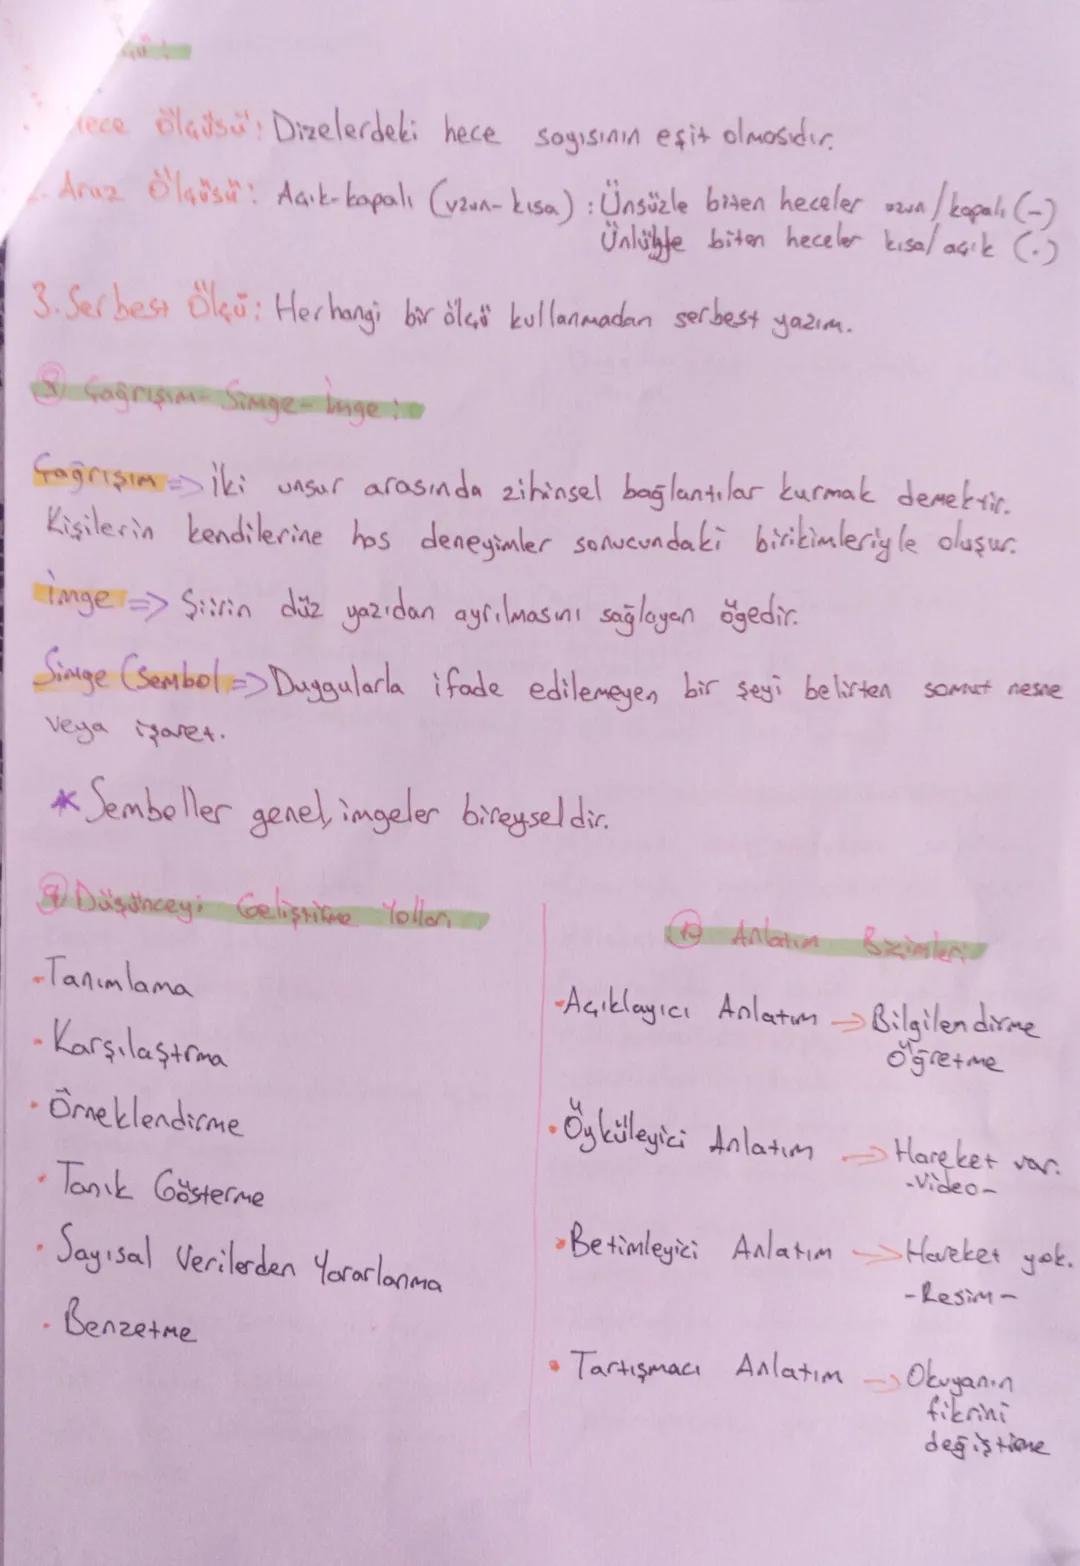 Hece Ölçüsü: Dizelerdeki hece sayısının eşit olmasıdır.
2. Aruz Ölçüsü: Açık-kapalı (uzun-kısa) : Ünsüzle biten heceler uzun/kapalı (-)
Ünlüyle biten heceler kısa/açık (.)
3. Serbest Ölçü: Herhangi bir ölçü kullanmadan serbest yazım.
8 Çağrışım-Simge-İmge:
Çağrışım => İki unsur arasında zihinsel bağlantılar kurmak demektir.
Kişilerin kendilerine has deneyimler sonucundaki birikimleriyle oluşur.
İmge => Şiirin düz yazıdan ayrılmasını sağlayan ögedir.
Simge (Sembol => Duygularla ifade edilemeyen bir şeyi belirten somut nesne
veya işaret.
* Semboller genel, imgeler bireyseldir.
9 Düşünceyi Geliştirme Yolları
- Tanımlama
- Karşılaştırma
- Örneklendirme
- Tanık Gösterme
- Sayısal Verilerden Yararlanma
- Benzetme
10 Anlatım Biçimleri
- Açıklayıcı Anlatım -> Bilgilendirme
Öğretme
- Öyküleyici Anlatım -> Hareket var.
-Video-
- Betimleyici Anlatım -> Hareket yok.
-Resim-
- Tartışmacı Anlatım -> Okuyanın
fikrini
değiştirme